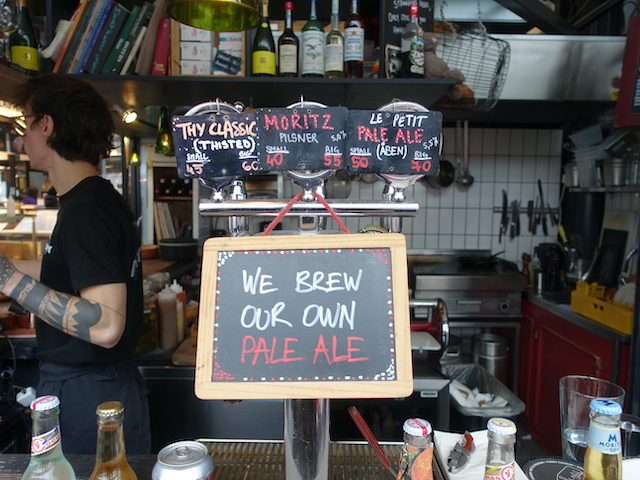 THY CLASSIC
(THISTED)
SMALL BIG
45 60
MORITZ
PILSNER 5,0%
SMALL BIG
40 55
LE PETIT
PALE ALE
(ÅBEN) 5,5%
SMALL BIG
50 70
WE BREW
OUR OWN
PALE ALE